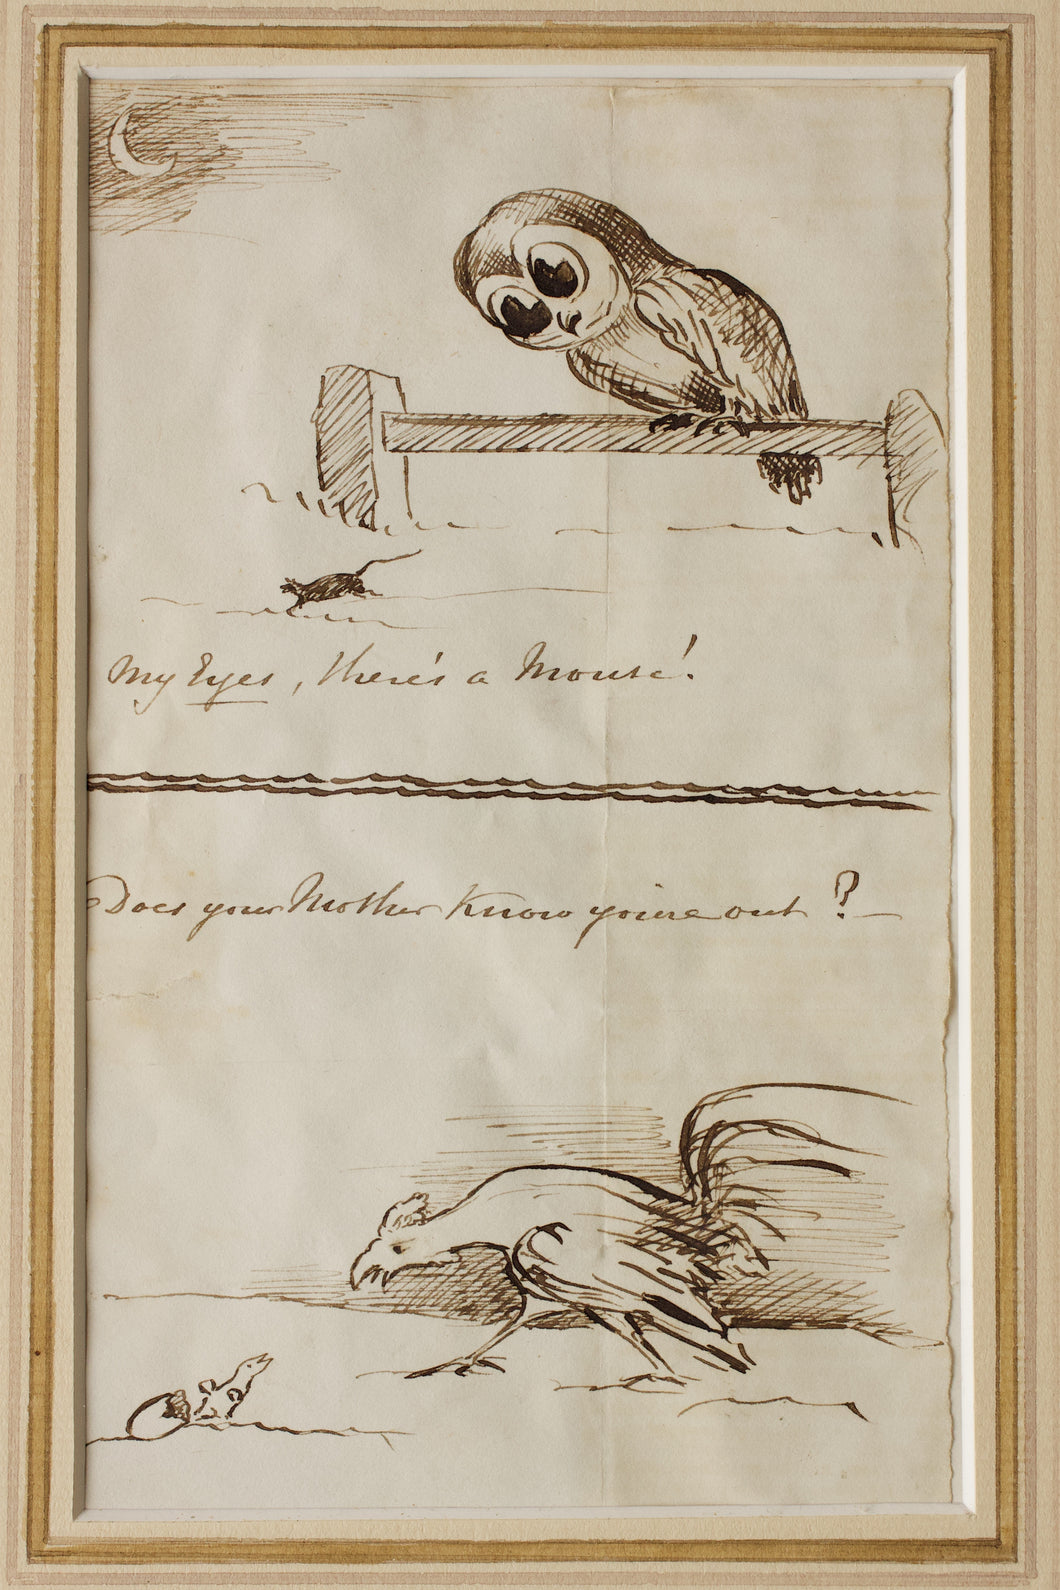 My Eyes, there's a Mouse!
Does your Mother Know you're out?